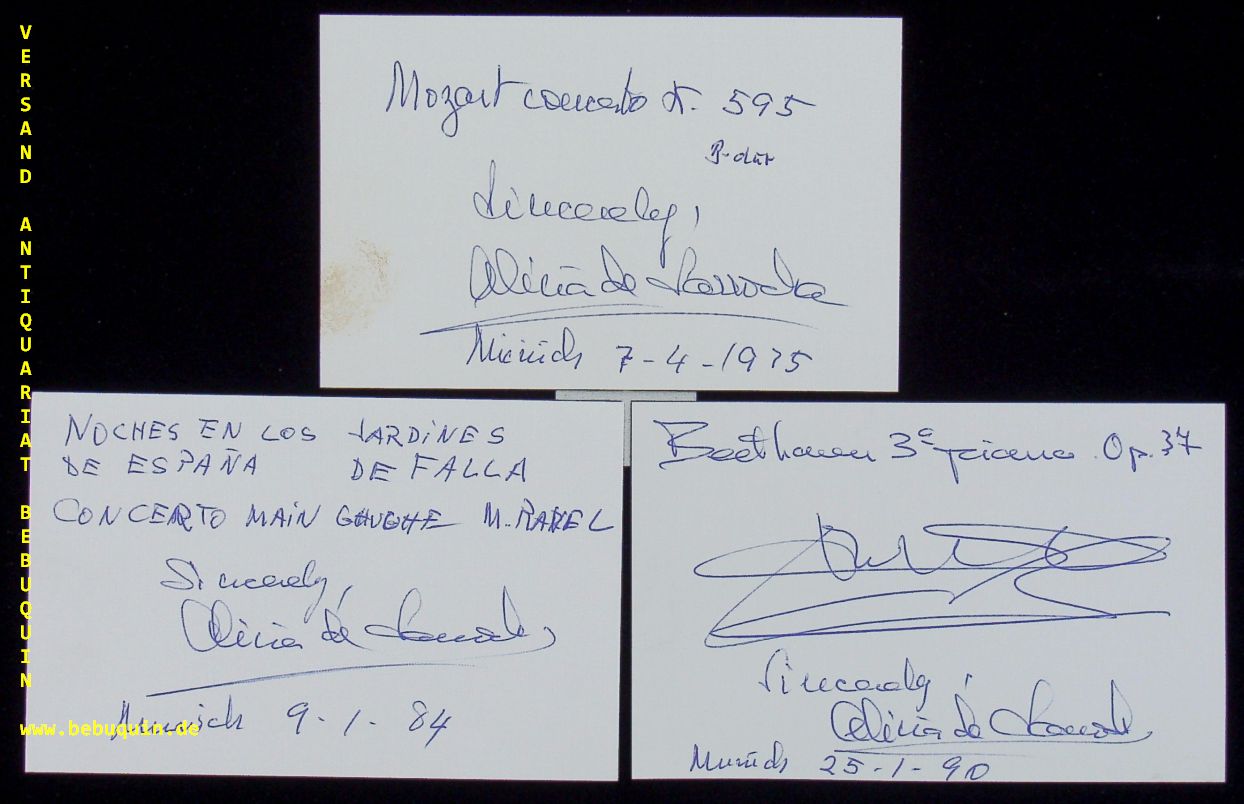 VERSAND ANTIQUARIAT BEBUQUIN
www.bebuquin.de
Mozart concerto K. 595
B-dur
Sincerely,
Alicia de Larrocha
Munich 7-4-1975
NOCHES EN LOS JARDINES
DE ESPAÑA DE FALLA
CONCERTO MAIN GHUGHE M. RAVEL
Sincerely,
Alicia de Larrocha
Munich 9-1-84
Beethoven 3º piano Op. 37
Sincerely,
Alicia de Larrocha
Munich 25-1-90